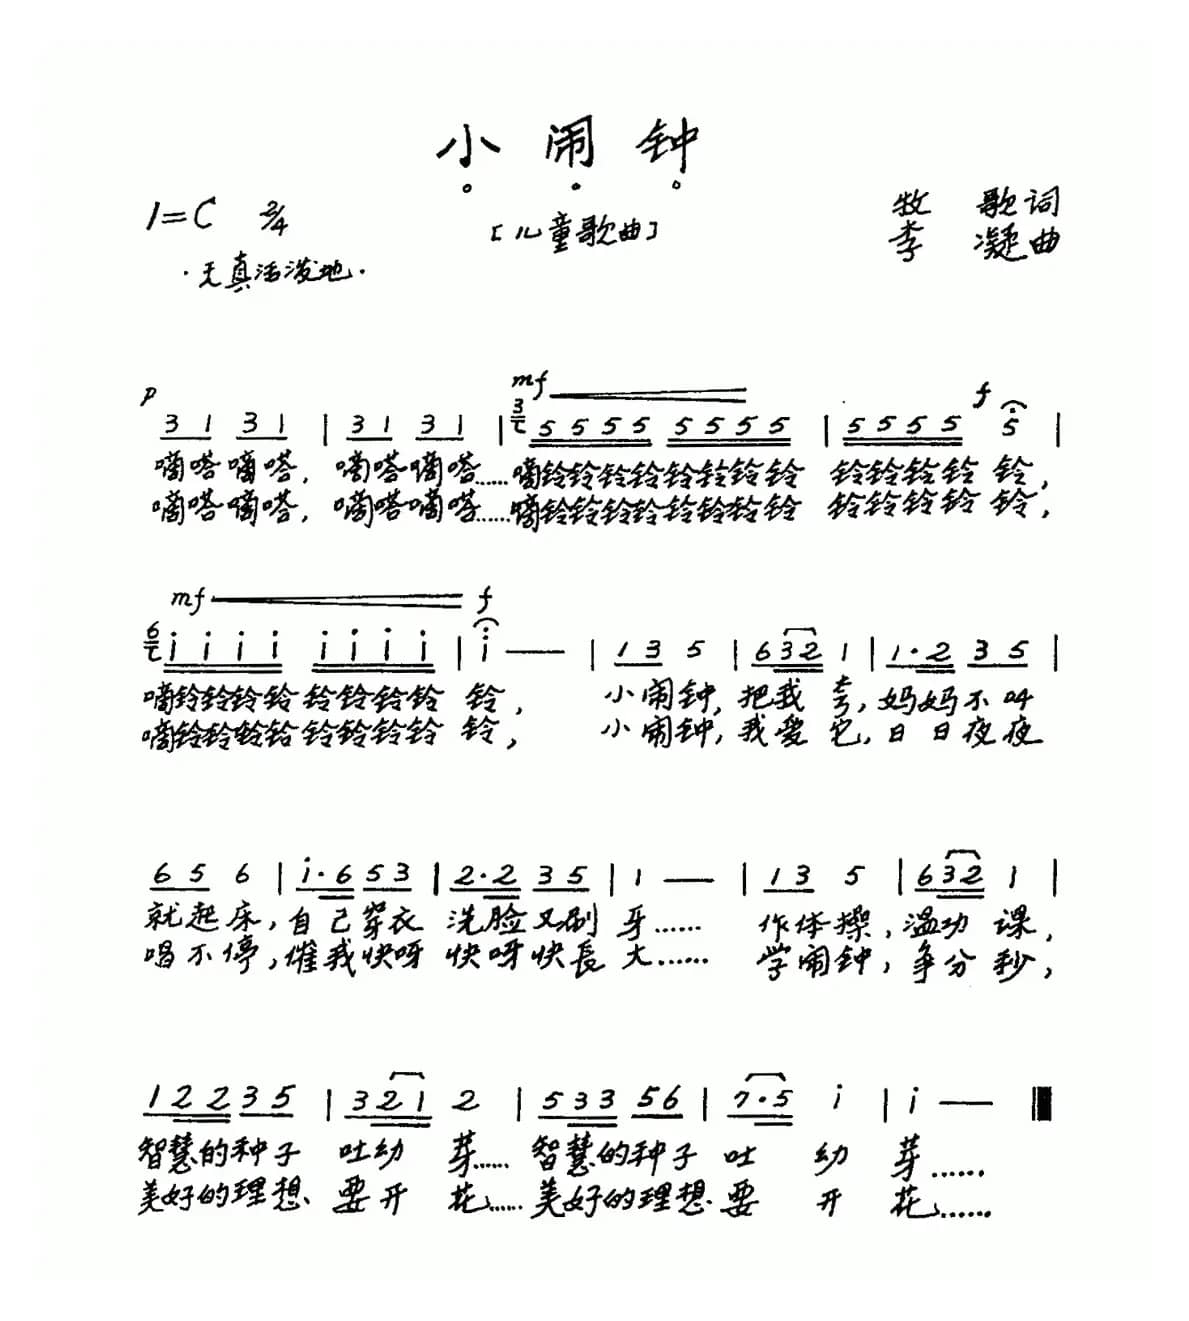 小闹钟
1=C 2/4
[儿童歌曲]
牧 歌词
李 凝曲
·天真活泼地·
p mf f
3 1 3 1 | 3 1 3 1 | 5 5 5 5 5 5 5 5 | 5 5 5 5 5 |
嘀嗒嘀嗒, 嘀嗒嘀嗒……嘀铃铃铃铃铃铃铃铃 铃铃铃铃 铃,
嘀嗒嘀嗒, 嘀嗒嘀嗒……嘀铃铃铃铃铃铃铃铃 铃铃铃铃 铃,
mf f
i i i i i i i i | i — | 1 3 5 | 6 3 2 1 | 1·2 3 5 |
嘀铃铃铃铃 铃铃铃铃 铃, 小闹钟, 把我夸, 妈妈不叫
嘀铃铃铃铃 铃铃铃铃 铃, 小闹钟, 我爱它, 日日夜夜
6 5 6 | i·6 5 3 | 2·2 3 5 | 1 — | 1 3 5 | 6 3 2 1 |
就起床, 自己穿衣 洗脸又刷 牙…… 作体操, 温功课,
唱不停, 催我快呀 快呀快長 大…… 学闹钟, 争分秒,
1 2 2 3 5 | 3 2 1 2 | 5 3 3 5 6 | 7·5 i | i —
智慧的种子 吐幼 芽…… 智慧的种子 吐 幼 芽……
美好的理想、要开 花…… 美好的理想、要 开 花……